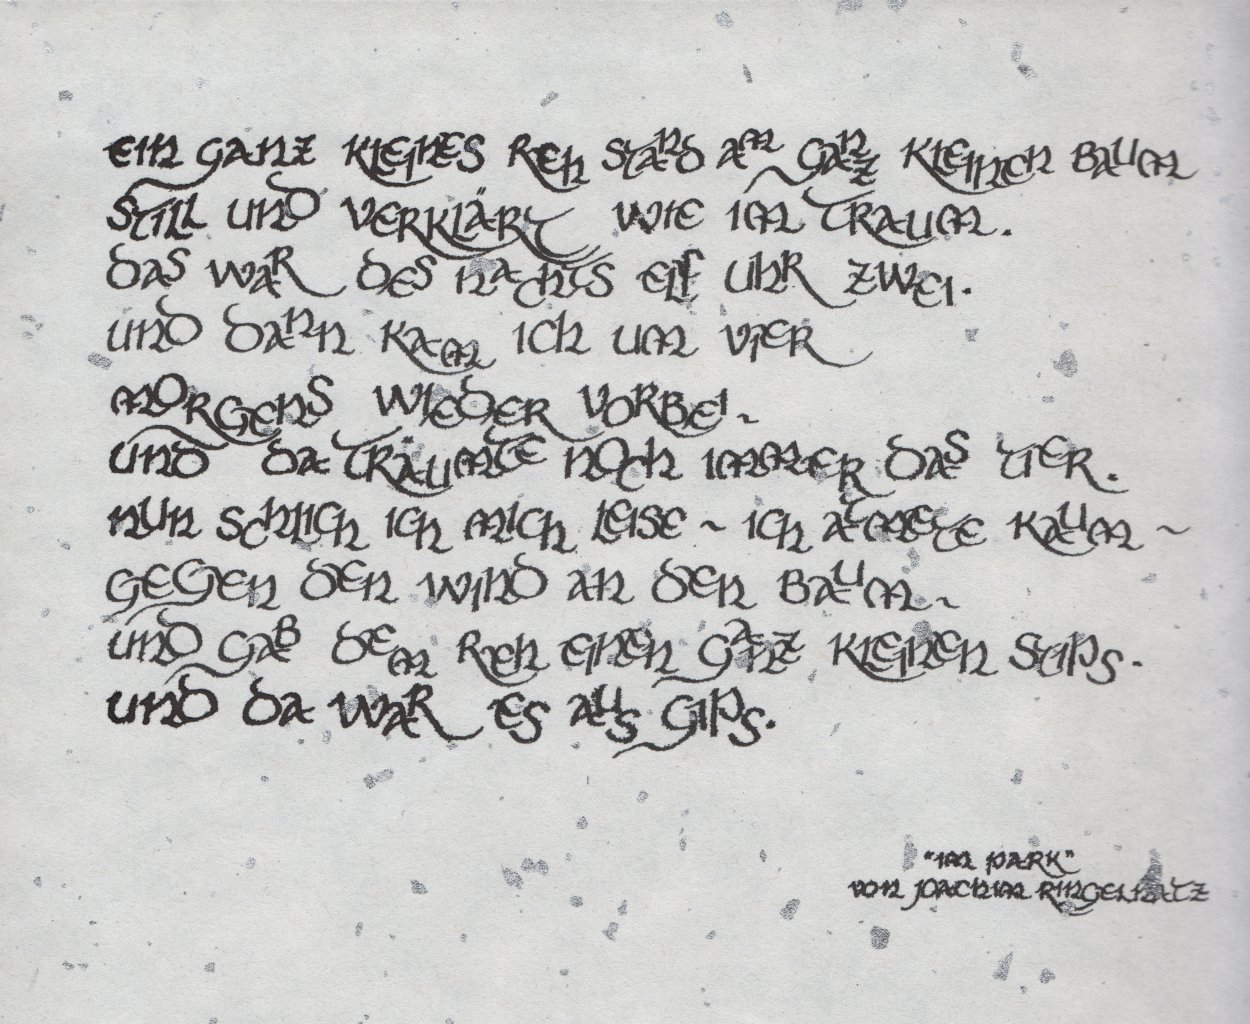 Ein ganz kleines Reh stand am ganz kleinen Baum
still und verklärt wie im Traum.
Das war des Nachts elf Uhr zwei.
Und dann kam ich um vier
Morgens wieder vorbei.
Und da träumte noch immer das Tier.
Nun schlich ich mich leise ~ ich atmete kaum ~
gegen den Wind an den Baum~
und gab dem Reh einen ganz kleinen Stips.
Und da war es aus Gips.
"Im Park"
von Joachim Ringelnatz